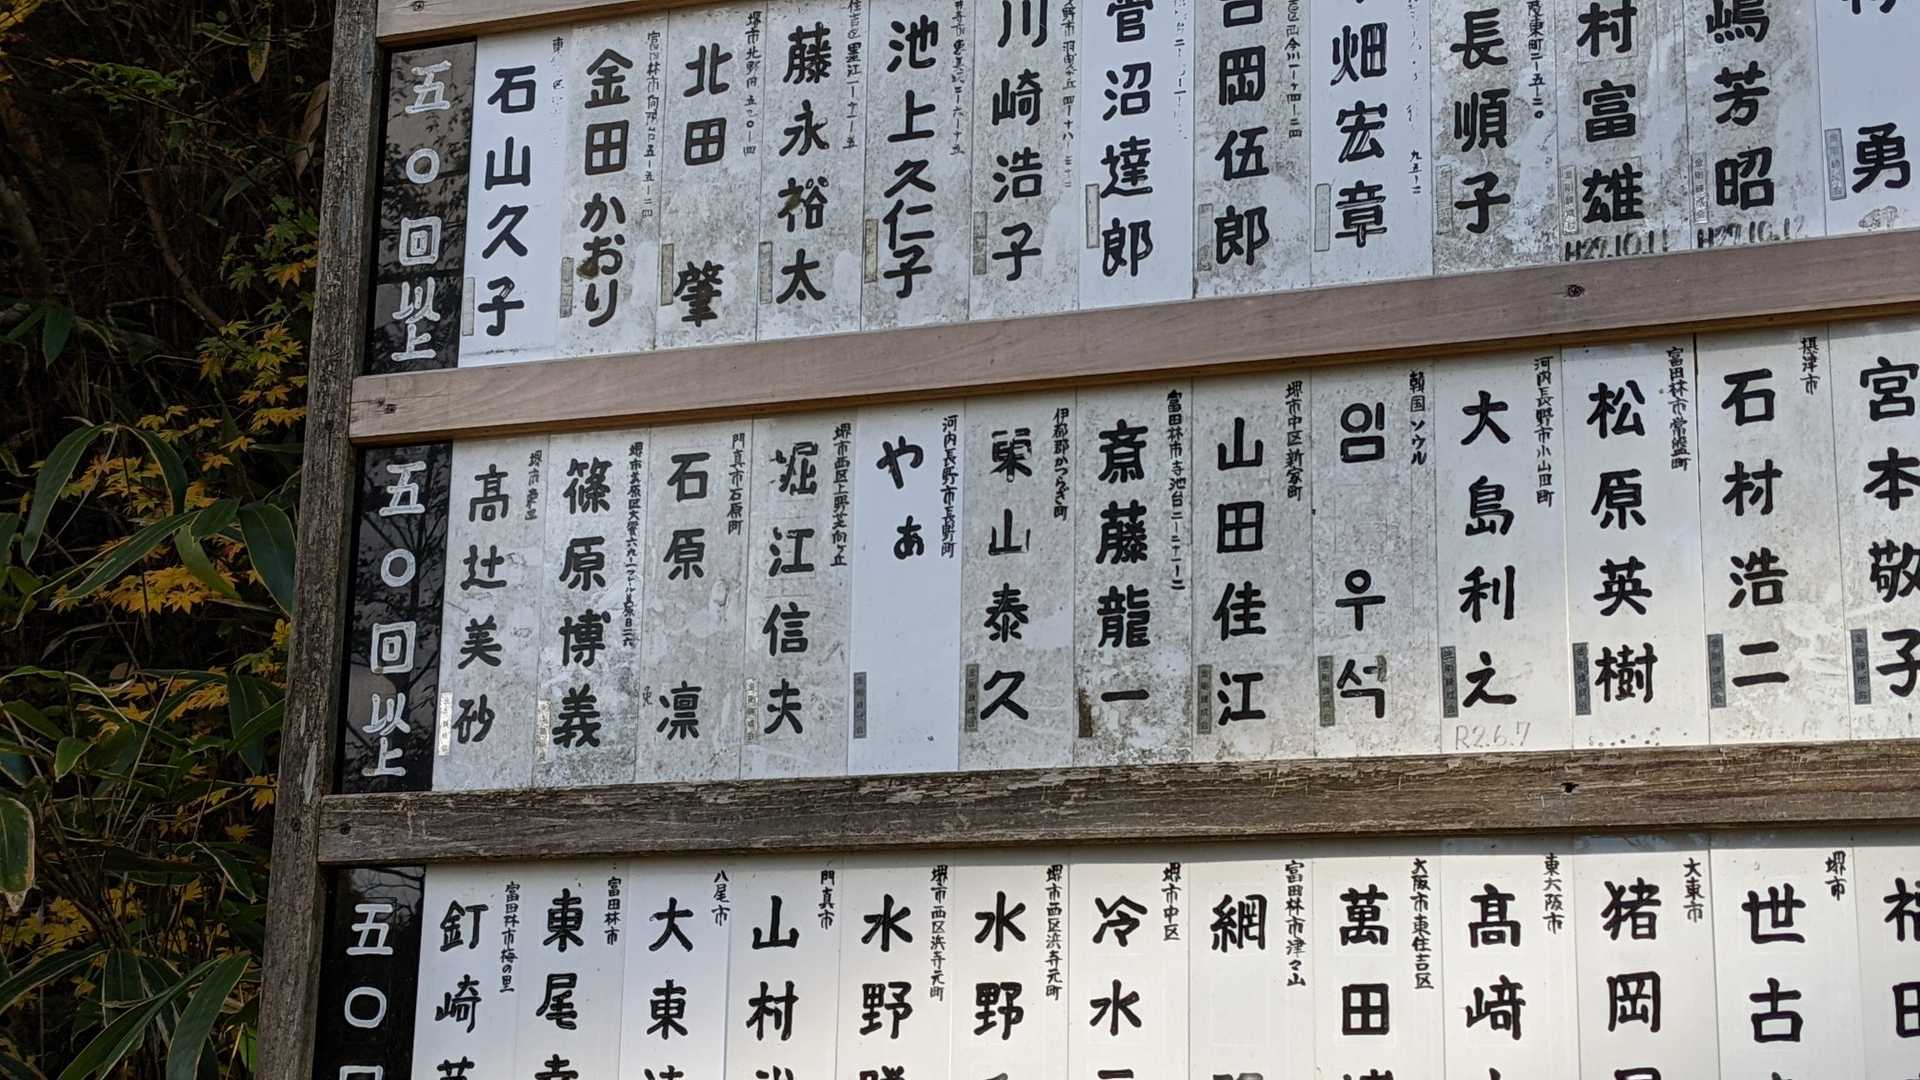 五〇回以上
勇
嶋芳昭
H27.10.12
村富雄
H27.10.11
長順子
畑宏章
吉岡伍郎
菅沼達郎
川崎浩子
池上久仁子
藤永裕太
堺市北野田五九〇-四
北田肇
金田かおり
石山久子
五〇回以上
宮本敬子
摂津市
石村浩二
富田林市常盤町
松原英樹
河内長野市小山田町
大島利え
R2.6.7
韓国ソウル
임우석
堺市中区新家町
山田佳江
富田林市寺池台二-二十一-二
斎藤龍一
伊都郡かつらぎ町
栗山泰久
河内長野市長野町
やぁ
堺市西区上野芝向ヶ丘
堀江信夫
門真市石原町
石原凛
篠原博義
堺市東区
高辻美砂
五〇回
堺市
世古
大東市
猪岡
東大阪市
髙﨑
大阪市東住吉区
萬田
富田林市津々山
網
堺市中区
冷水
堺市西区浜寺元町
水野
堺市西区浜寺元町
水野
門真市
山村
八尾市
大東
富田林市
東尾
富田林市梅の里
釘崎